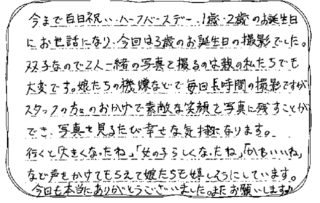 今まで百日祝い、ハーフバースデー、1歳・2歳のお誕生日
にお世話になり、今回は3歳のお誕生日の撮影でした。
双子なので2人一緒の写真を撮るのは親の私たちでも
大変です。娘たちの機嫌などで毎回長時間の撮影ですが
スタッフの方々のおかげで素敵な笑顔を写真に残すことが
でき、写真を見るたび幸せな気持になります。
行くと「大きくなったね」「女の子らしくなったね」「かわいいね」
など声をかけてもらえて娘たちも嬉しそうにしています。
今回も本当にありがとうございいました。またお願いします♪